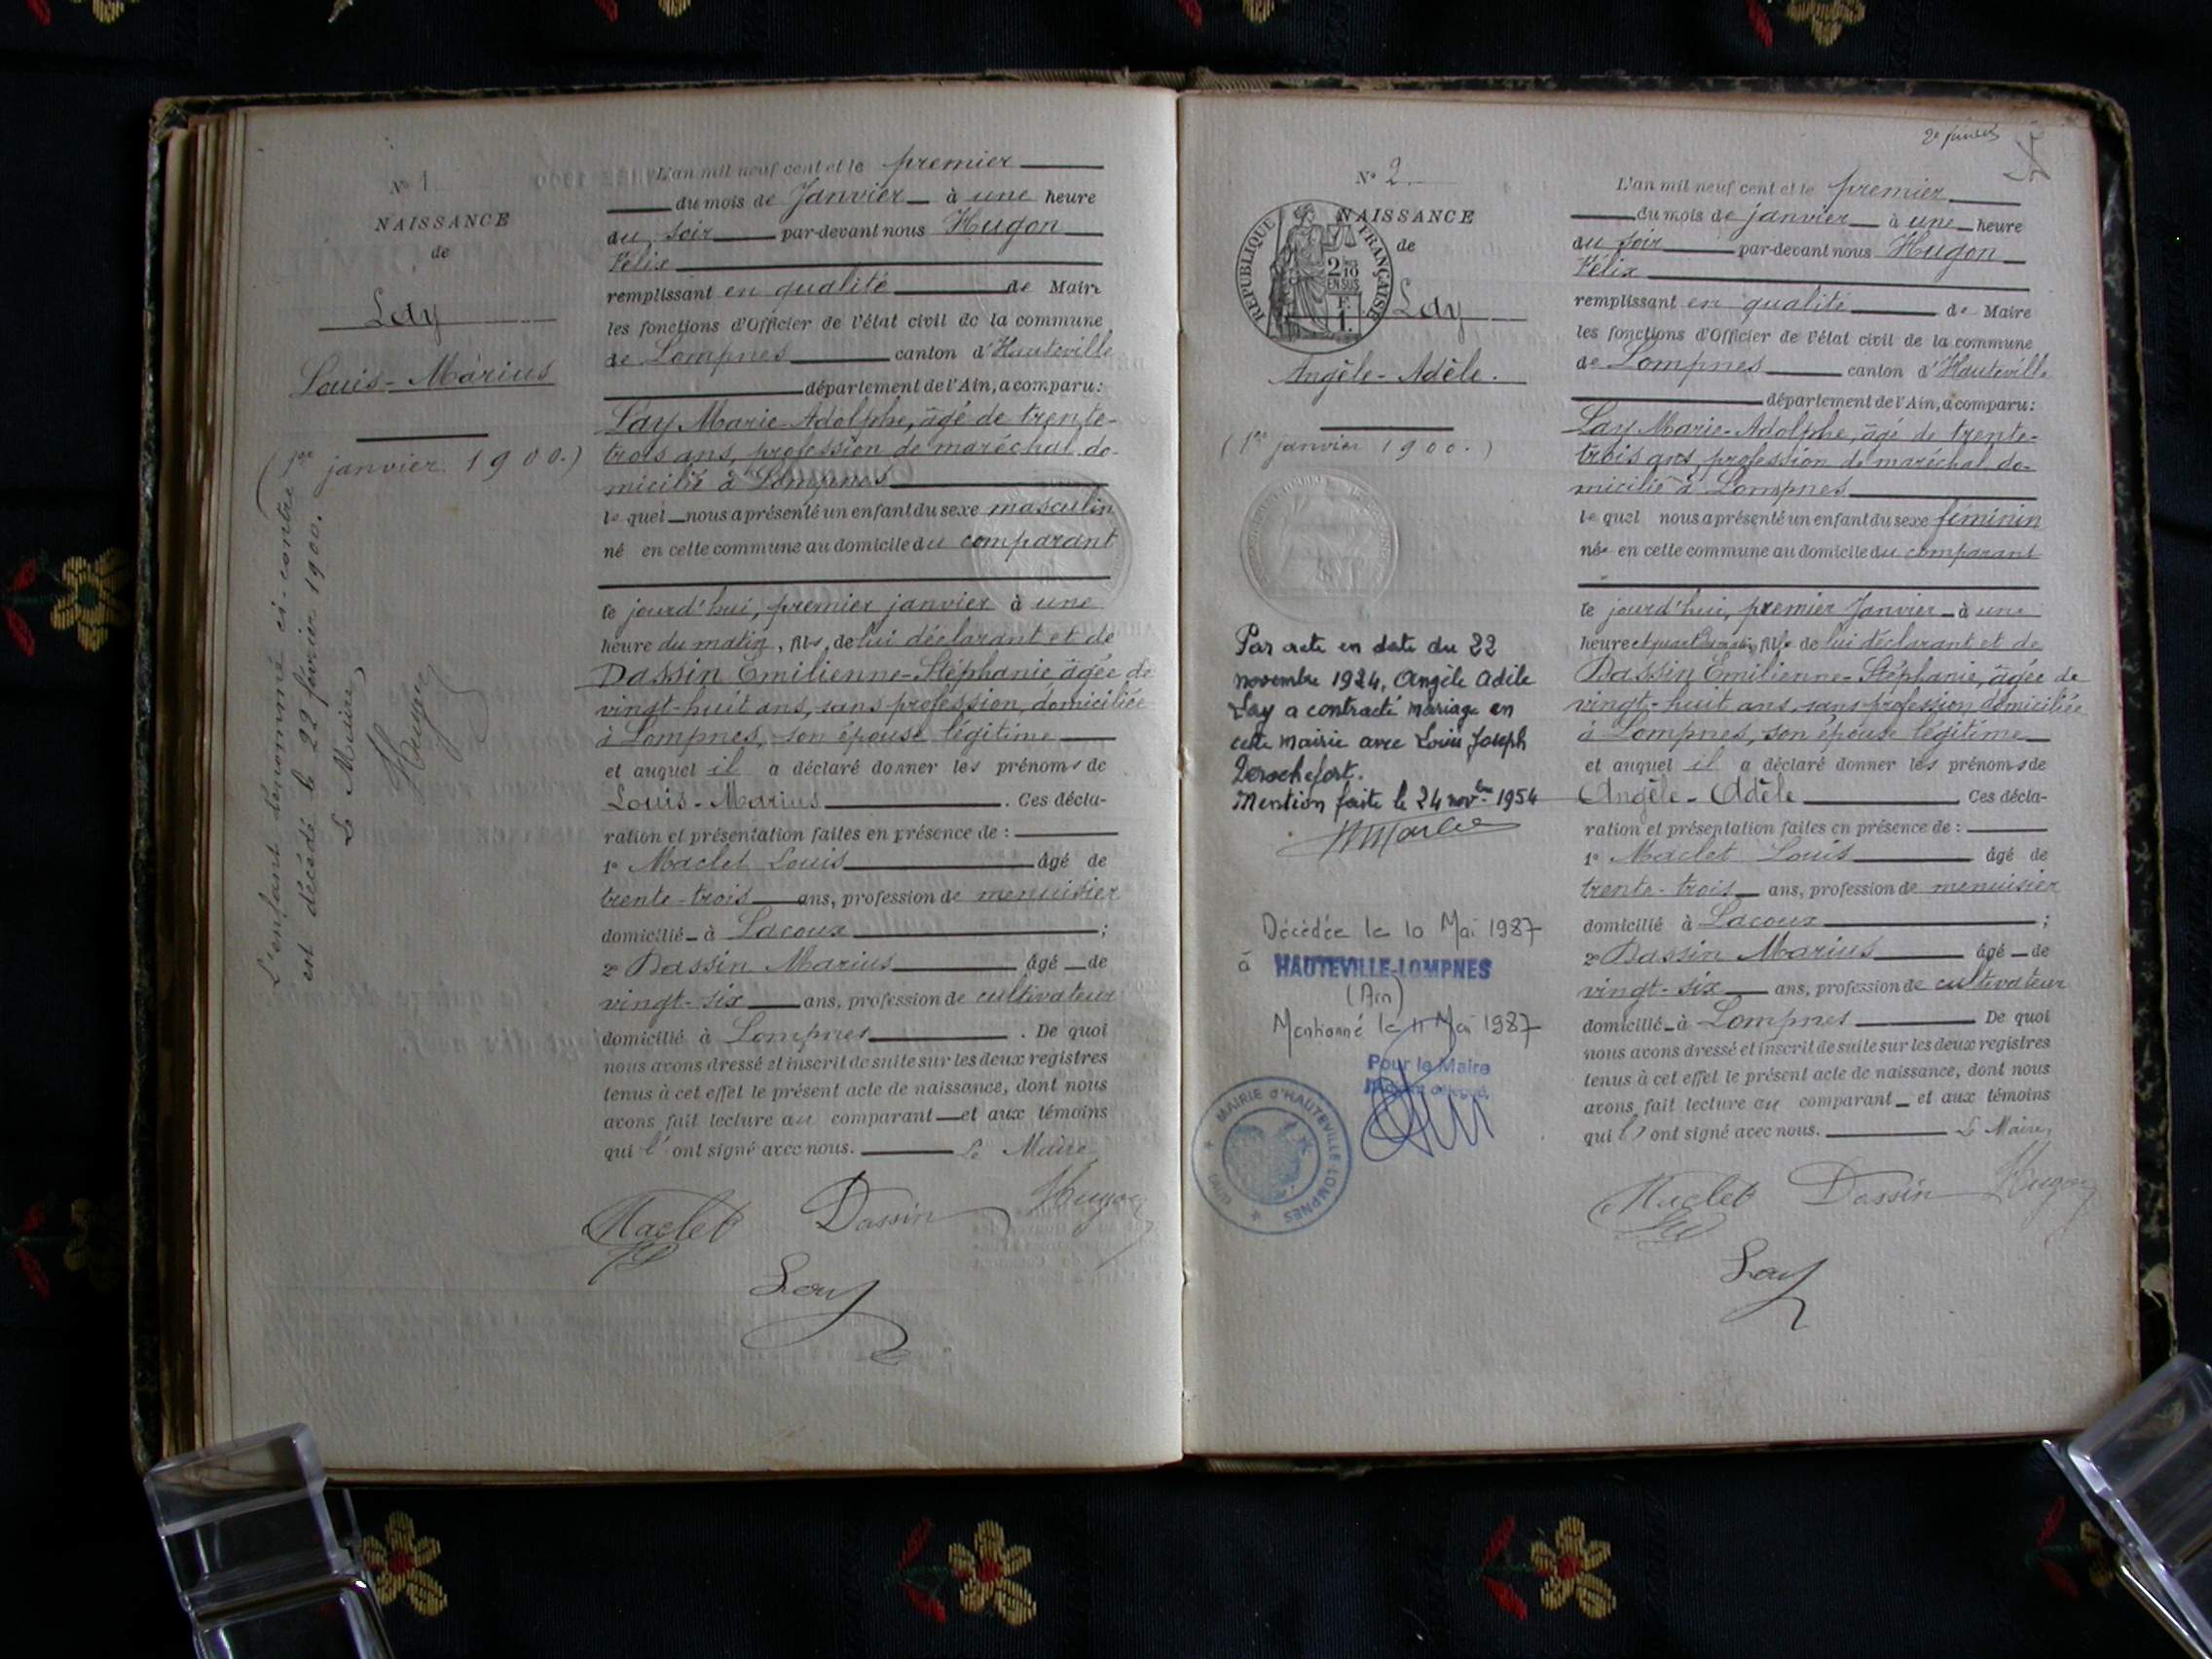 N° 1
NAISSANCE
de
Lay
Louis-Marius
(1er janvier 1900.)
L'enfant dénommé ci-contre
est décédé le 22 février 1900.
Le Maire,
Hugon
L'an mil neuf cent et le premier
du mois de Janvier à une heure
du soir par-devant nous Hugon
Félix
remplissant en qualité de Maire
les fonctions d'Officier de l'état civil de la commune
de Lompnes canton d'Hauteville
département de l'Ain, a comparu:
Lay Marie-Adolphe, âgé de trente-
trois ans, profession de maréchal do-
micilié à Lompnes
lequel nous a présenté un enfant du sexe masculin
né en cette commune au domicile du comparant
ce jourd'hui, premier janvier à une
heure du matin, fils, de lui déclarant et de
Dassin Emilienne-Stéphanie âgée de
vingt-huit ans, sans profession, domiciliée
à Lompnes, son épouse légitime
et auquel il a déclaré donner les prénoms de
Louis-Marius. Ces décla-
ration et présentation faites en présence de :
1° Maclet Louis âgé de
trente-trois ans, profession de menuisier
domicilié à Lacoux ;
2° Dassin Marius âgé de
vingt-six ans, profession de cultivateur
domicilié à Lompnes. De quoi
nous avons dressé et inscrit de suite sur les deux registres
tenus à cet effet le présent acte de naissance, dont nous
avons fait lecture au comparant et aux témoins
qui l' ont signé avec nous. Le Maire
Maclet Dassin Hugon
Lay
N° 2
NAISSANCE
de
RÉPUBLIQUE FRANÇAISE
2/10
EN SUS
F.
1.
Lay
Angèle-Adèle.
(1er janvier 1900.)
Par acte en date du 22
novembre 1924, Angèle Adèle
Lay a contracté mariage en
cette mairie avec Louis Joseph
Derochefort.
Mention faite le 24 novbre 1954
Décédée le 10 Mai 1987
à HAUTEVILLE-LOMPNES
(Ain)
Mentionné le 11 Mai 1987
Pour le Maire
MAIRIE D'HAUTEVILLE LOMPNES
(AIN)
L'an mil neuf cent et le premier
du mois de janvier à une heure
du soir par-devant nous Hugon
Félix
remplissant en qualité de Maire
les fonctions d'Officier de l'état civil de la commune
de Lompnes canton d'Hauteville
département de l'Ain, a comparu:
Lay Marie-Adolphe, âgé de trente-
trois ans, profession de maréchal do-
micilié à Lompnes
lequel nous a présenté un enfant du sexe féminin
née en cette commune au domicile du comparant
ce jourd'hui, premier Janvier à une
heure et quart du matin, fille de lui déclarant et de
Dassin Emilienne-Stéphanie, âgée de
vingt-huit ans, sans profession domiciliée
à Lompnes, son épouse légitime
et auquel il a déclaré donner les prénoms de
Angèle-Adèle Ces décla-
ration et présentation faites en présence de :
1° Maclet Louis âgé de
trente-trois ans, profession de menuisier
domicilié à Lacoux ;
2° Dassin Marius âgé de
vingt-six ans, profession de cultivateur
domicilié à Lompnes De quoi
nous avons dressé et inscrit de suite sur les deux registres
tenus à cet effet le présent acte de naissance, dont nous
avons fait lecture au comparant et aux témoins
qui l' ont signé avec nous. Le Maire,
Maclet Dassin Hugon
Lay